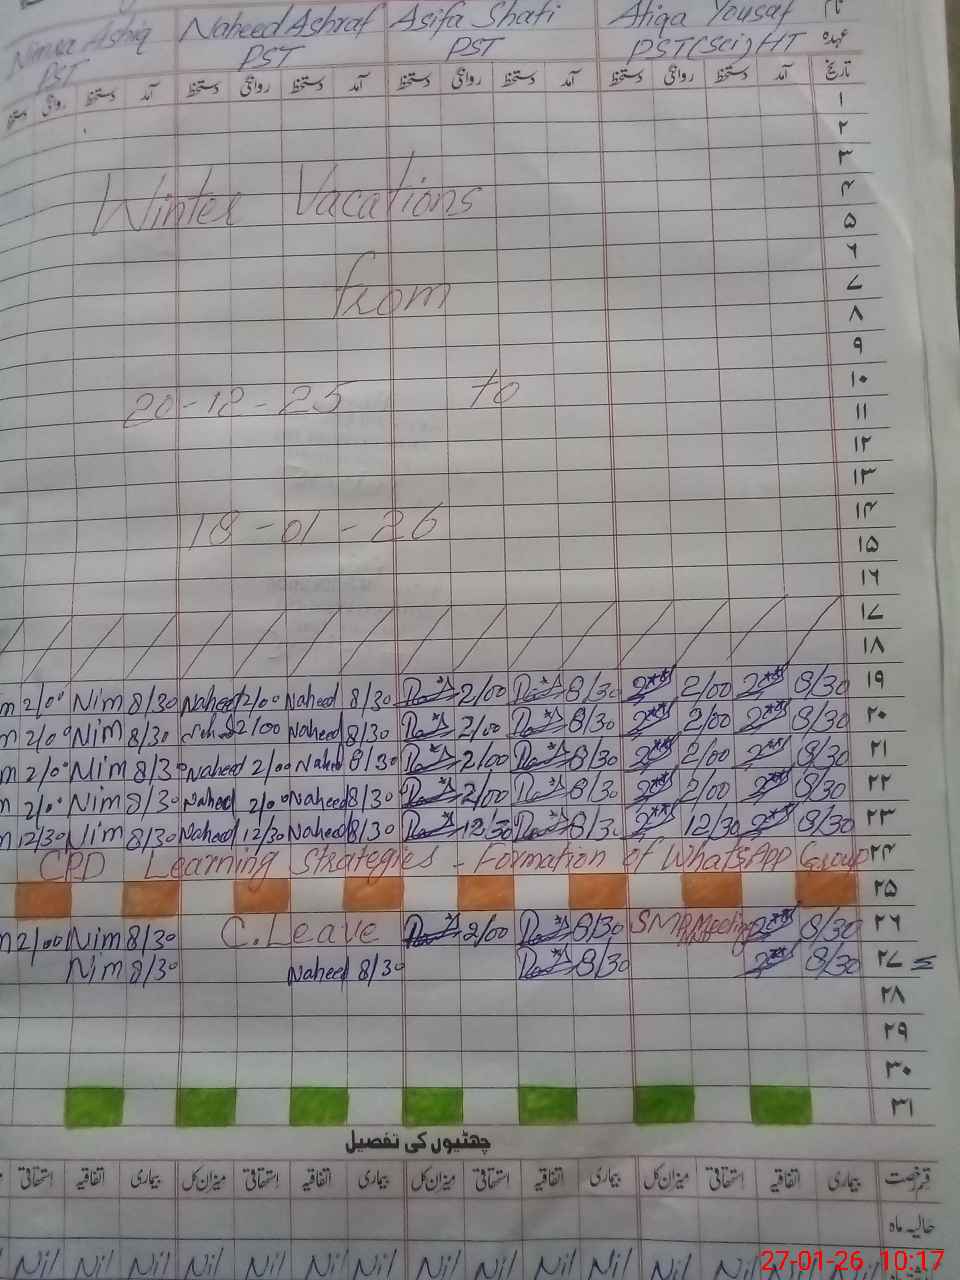 Nimra Ashiq Naheed Ashraf Asifa Shafi Atiqa Yousaf نام
PST PST PST PST(Sci) HT عہدہ
دستخط روانگی دستخط آمد دستخط روانگی دستخط آمد دستخط روانگی دستخط آمد دستخط روانگی دستخط آمد تاریخ
۱
۲
۳
۴
Winter Vacations
۵
۶
۷
from
۸
۹
۱۰
20-12-25 to
۱۱
۱۲
۱۳
۱۴
18-01-26
۱۵
۱۶
۱۷
۱۸
2/00 Nim 8/30 Naheed 2/00 Naheed 8/30 2/00 8/30 2/00 8/30 ۱۹
2/00 Nim 8/30 Naheed 2/00 Naheed 8/30 2/00 8/30 2/00 8/30 ۲۰
2/00 Nim 8/30 Naheed 2/00 Naheed 8/30 2/00 8/30 2/00 8/30 ۲۱
2/00 Nim 8/30 Naheed 2/00 Naheed 8/30 2/00 8/30 2/00 8/30 ۲۲
12/30 Nim 8/30 Naheed 12/30 Naheed 8/30 12/30 8/30 12/30 8/30 ۲۳
CPD Learning Strategies - Formation of WhatsApp Group ۲۴
۲۵
2/00 Nim 8/30 C.Leave 2/00 8/30 Meeting 8/30 ۲۶
Nim 8/30 Naheed 8/30 8/30 8/30 ۲۷
۲۸
۲۹
۳۰
۳۱
چھٹیوں کی تفصیل
استحقاقی اتفاقیہ بیماری میزان کل استحقاقی اتفاقیہ بیماری میزان کل استحقاقی اتفاقیہ بیماری میزان کل استحقاقی اتفاقیہ بیماری قسم رخصت
حالیہ ماہ
Nil Nil Nil Nil Nil Nil Nil Nil Nil Nil Nil Nil Nil
27-01-26 10:17